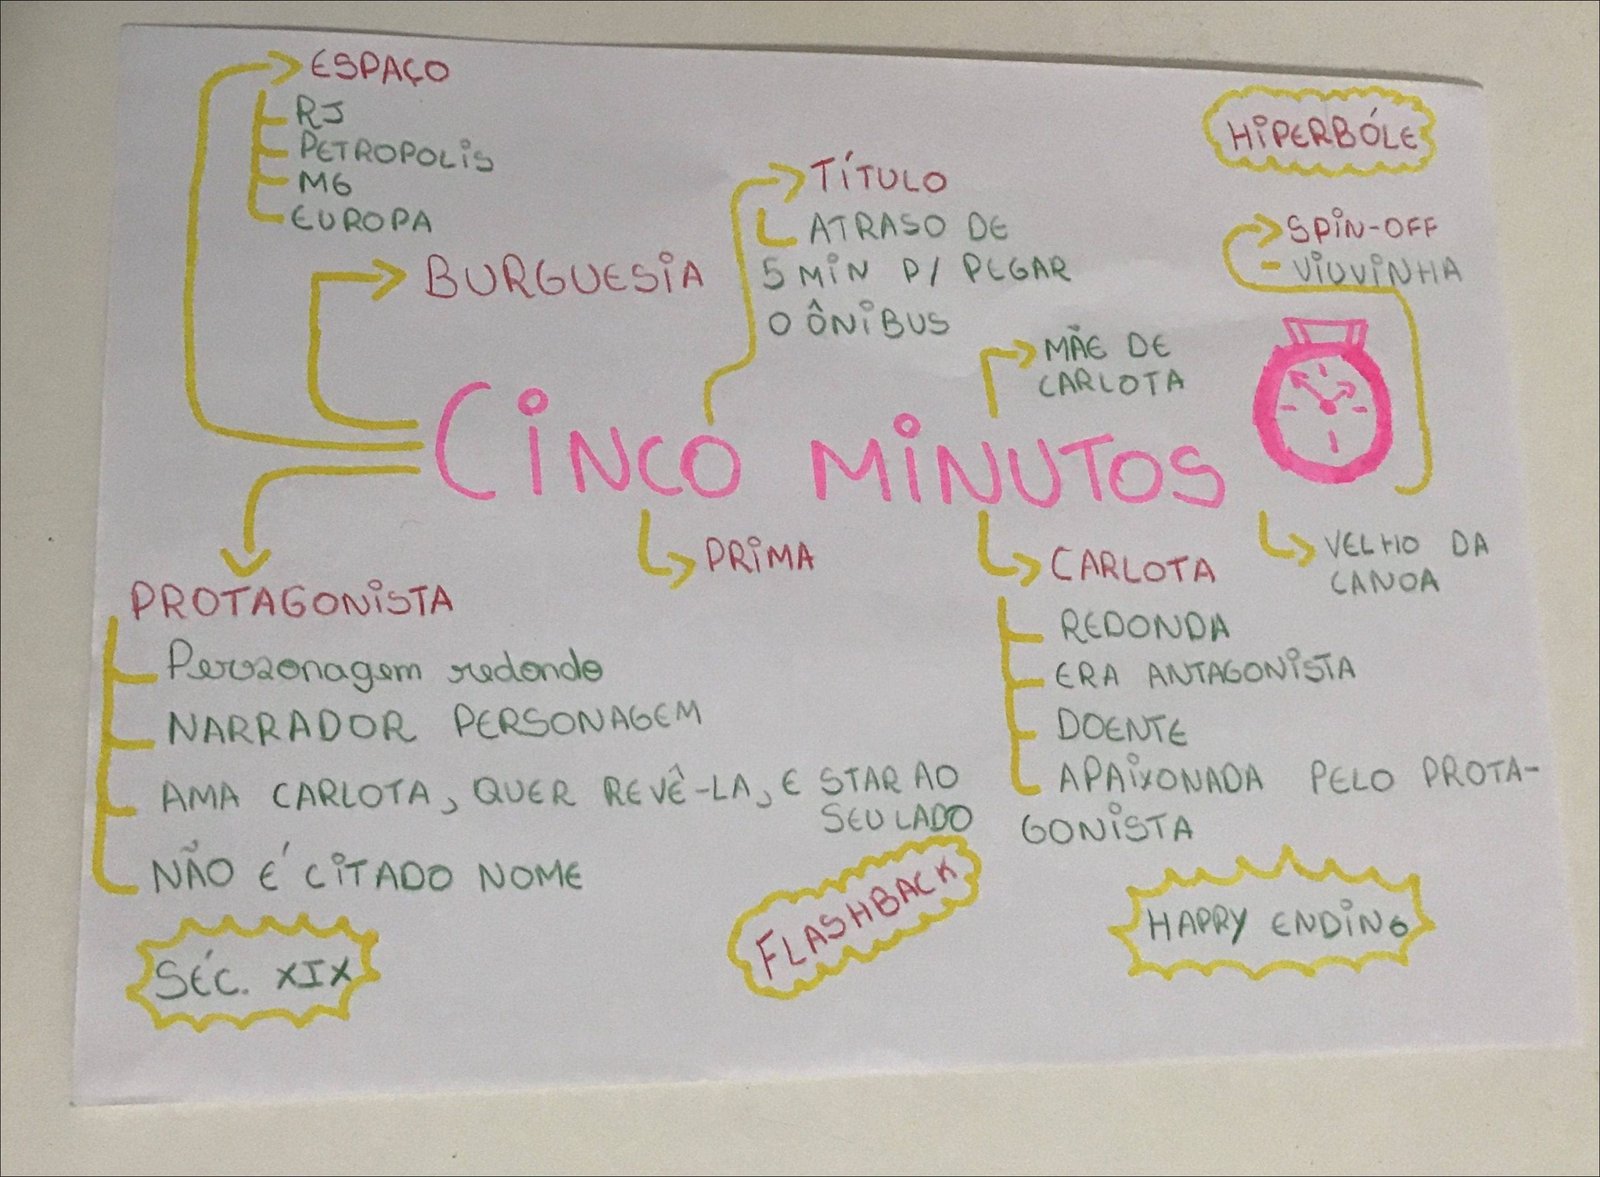 ESPAÇO
RJ
PETROPOLIS
MG
EUROPA
BURGUESIA
TÍTULO
ATRASO DE
5 MIN P/ PEGAR
O ÔNIBUS
HIPERBÓLE
SPIN-OFF
- VIUVINHA
MÃE DE
CARLOTA
CINCO MINUTOS
PRIMA
CARLOTA
REDONDA
ERA ANTAGONISTA
DOENTE
APAIXONADA PELO PROTA-
GONISTA
VELHO DA
CANOA
PROTAGONISTA
Personagem redondo
NARRADOR PERSONAGEM
AMA CARLOTA, QUER REVÊ-LA, E STAR AO
SEU LADO
NÃO É CITADO NOME
SÉC. XIX
FLASHBACK
HAPPY ENDING